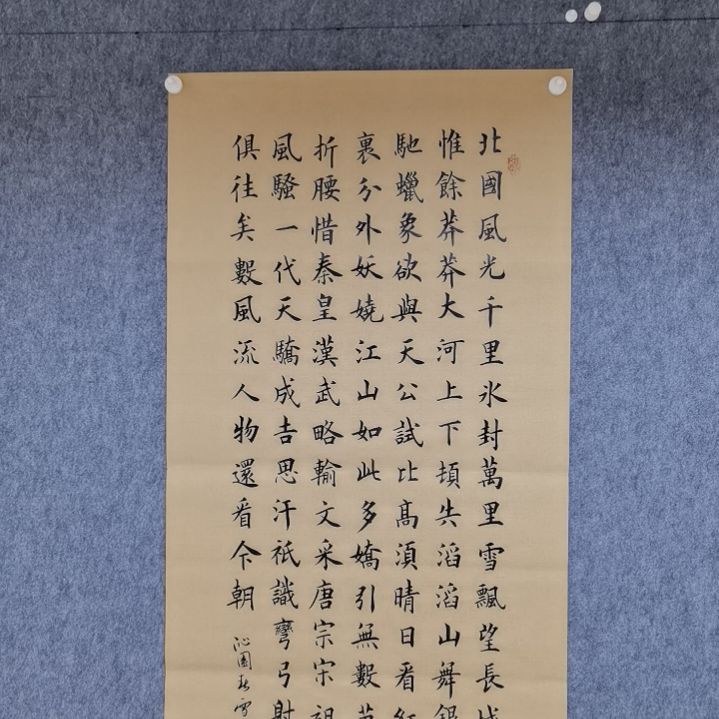 北國風光千里氷封萬里雪飄望長城
惟餘莽莽大河上下頓失滔滔山舞銀
馳蠟象欲與天公試比高須晴日看紅
裹分外妖嬈江山如此多嬌引無數英
折腰惜秦皇漢武略輸文采唐宗宋祖
風騷一代天驕成吉思汗祇識彎弓射
俱往矣數風流人物還看今朝
沁園春雪